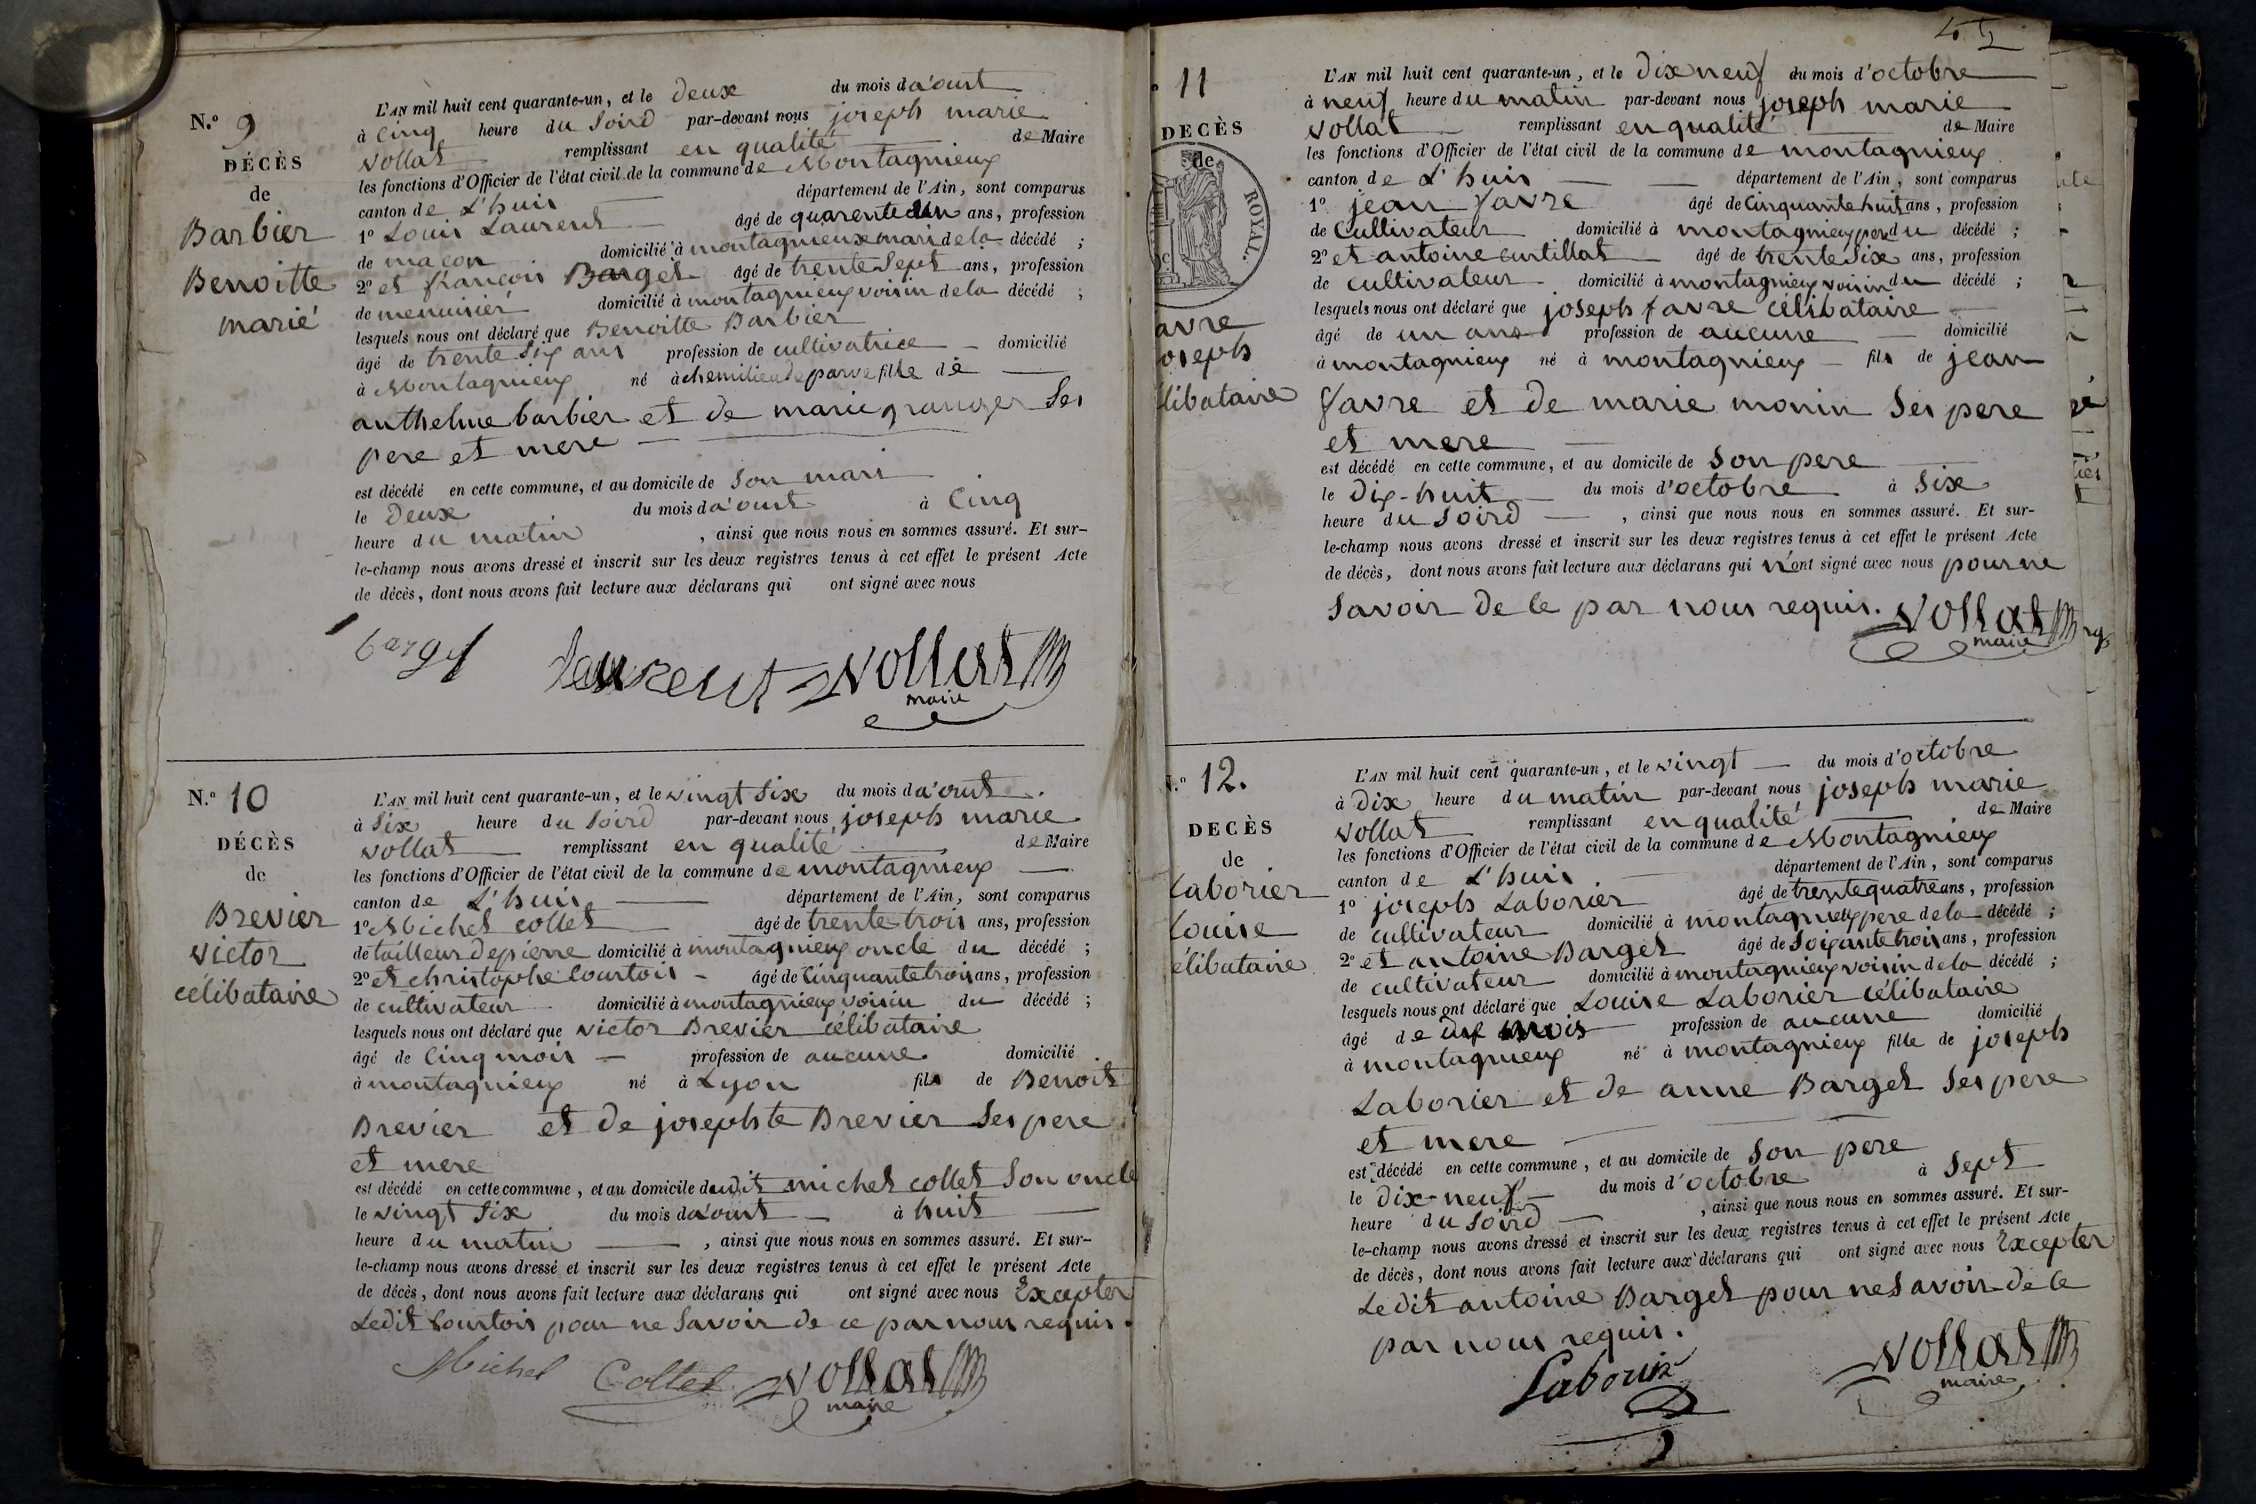 N.o 9
DÉCÈS
de
Barbier
Benoitte
marié
L'AN mil huit cent quarante-un, et le deux du mois d'a'out
à Cinq heure du Soird par-devant nous joseph marie
vollat remplissant en qualité de Maire
les fonctions d'Officier de l'état civil de la commune de Montagnieux
canton de L'huis département de l'Ain, sont comparus
1o Louis Laurent âgé de quarente un ans, profession
de maçon domicilié à montagnieux mari de la décédé ;
2o et françois Barget âgé de trente Sept ans, profession
de menuisier domicilié à montagnieux voisin de la décédé ;
lesquels nous ont déclaré que Benoitte Barbier
âgé de trente Six ans profession de cultivatrice domicilié
à Montagnieux né à chemilieu de parve fille de
anthelme barbier et de marie granger Ses
pere et mere
est décédé en cette commune, et au domicile de Son mari
le Deux du mois d'a'out à Cinq
heure du matin , ainsi que nous nous en sommes assuré. Et sur-
le-champ nous avons dressé et inscrit sur les deux registres tenus à cet effet le présent Acte
de décès, dont nous avons fait lecture aux déclarans qui ont signé avec nous
barget laurent vollat
maire
N.o 10
DÉCÈS
de
Brevier
victor
célibataire
L'AN mil huit cent quarante-un, et le vingt Six du mois d'a'out
à Six heure du Soird par-devant nous joseph marie
vollat remplissant en qualité de Maire
les fonctions d'Officier de l'état civil de la commune de montagnieux
canton de L'huis département de l'Ain, sont comparus
1o Michel collet âgé de trente trois ans, profession
de tailleur de pierre domicilié à montagnieux oncle du décédé ;
2o et christophe Courtois âgé de Cinquante trois ans, profession
de cultivateur domicilié à montagnieux voisin du décédé ;
lesquels nous ont déclaré que victor Brevier célibataire
âgé de Cinq mois profession de aucune domicilié
à montagnieux né à Lyon fils de Benoit
Brevier et de josephte Brevier Ses pere
et mere
est décédé en cette commune, et au domicile dudit michel collet Son oncle
le vingt Six du mois d'a'out à huit
heure du matin , ainsi que nous nous en sommes assuré. Et sur-
le-champ nous avons dressé et inscrit sur les deux registres tenus à cet effet le présent Acte
de décès, dont nous avons fait lecture aux déclarans qui ont signé avec nous Excepter
Ledit Courtois pour ne Savoir de ce par nous requis.
Michel Collet vollat
maire
45
11
DECÈS
de
ROYAL.
avre
oseph
libataire
L'AN mil huit cent quarante-un, et le dix neuf du mois d'octobre
à neuf heure du matin par-devant nous joseph marie
vollat remplissant en qualité de Maire
les fonctions d'Officier de l'état civil de la commune de montagnieux
canton de L'huis département de l'Ain, sont comparus
1o jean favre âgé de Cinquante huit ans, profession
de Cultivateur domicilié à montagnieux pere du décédé ;
2o et antoine Curtillat âgé de trente Six ans, profession
de cultivateur domicilié à montagnieux voisin du décédé ;
lesquels nous ont déclaré que joseph favre célibataire
âgé de un ans profession de aucune domicilié
à montagnieux né à montagnieux fils de jean
favre et de marie monin Ses pere
et mere
est décédé en cette commune, et au domicile de Son pere
le Dix-huit du mois d'octobre à Six
heure du Soird , ainsi que nous nous en sommes assuré. Et sur-
le-champ nous avons dressé et inscrit sur les deux registres tenus à cet effet le présent Acte
de décès, dont nous avons fait lecture aux déclarans qui n'ont signé avec nous pour ne
Savoir de ce par nous requis. vollat
maire
N.o 12.
DECÈS
de
Laborier
Louise
élibataire
L'AN mil huit cent quarante-un, et le vingt du mois d'octobre
à Dix heure du matin par-devant nous joseph marie
vollat remplissant en qualité de Maire
les fonctions d'Officier de l'état civil de la commune de Montagnieux
canton de L'huis département de l'Ain, sont comparus
1o joseph Laborier âgé de trente quatre ans, profession
de cultivateur domicilié à montagnieux pere de la décédé ;
2o et antoine Barget âgé de Soixante trois ans, profession
de cultivateur domicilié à montagnieux voisin de la décédé ;
lesquels nous ont déclaré que Louise Laborier célibataire
âgé de mois profession de aucune domicilié
à montagnieux né à montagnieux fille de joseph
Laborier et de anne Barget Ses pere
et mere
est décédé en cette commune, et au domicile de Son pere
le Dix-neuf du mois d'octobre à Sept
heure du Soird , ainsi que nous nous en sommes assuré. Et sur-
le-champ nous avons dressé et inscrit sur les deux registres tenus à cet effet le présent Acte
de décès, dont nous avons fait lecture aux déclarans qui ont signé avec nous Excepter
Ledit antoine Barget pour ne Savoir de ce
par nous requis.
Laborier vollat
maire